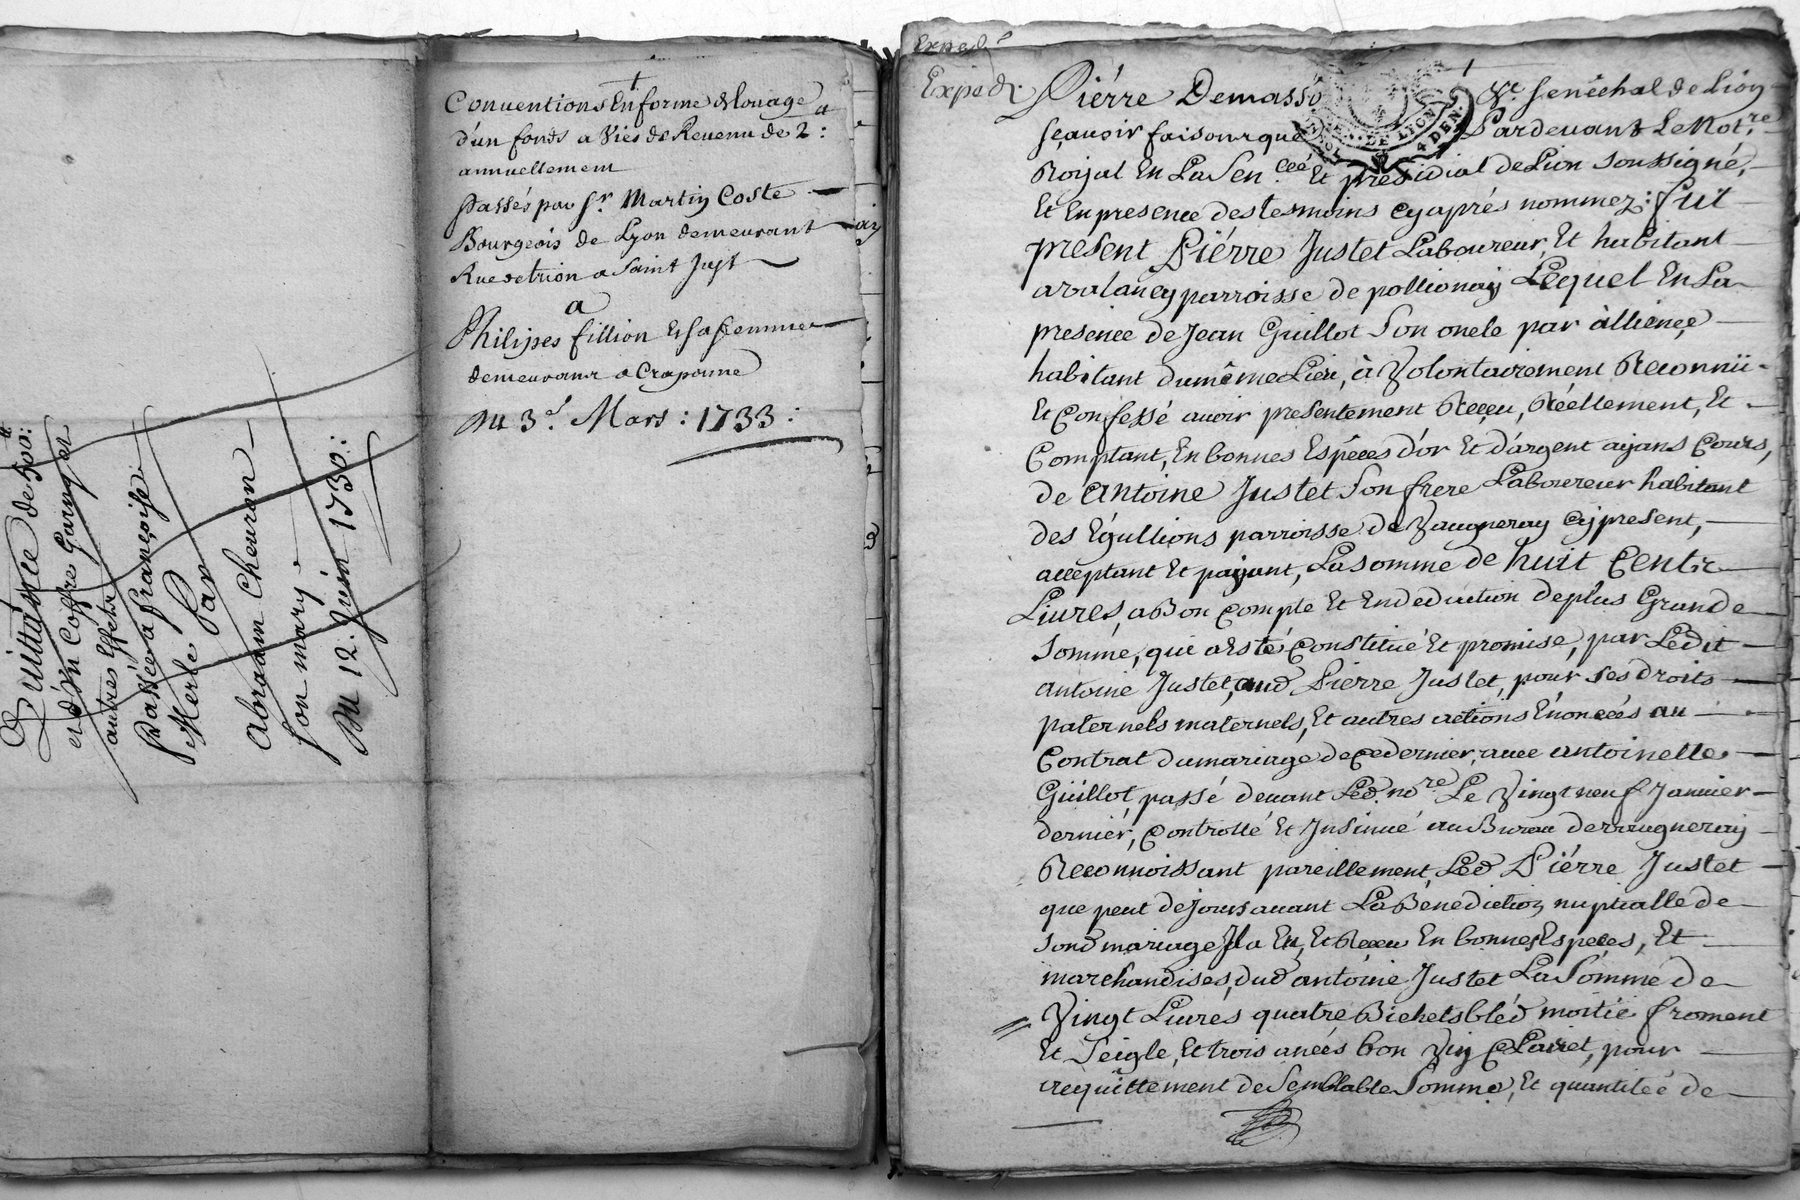 Quittance de 500:ᵗᵗ
et d'un Coffre Garny et
autres Effets
Passée a françoise
Merle Par
Abraam Chevron
son mary.
Du 12. Juin 1730:
Conventions En forme de Louage
d'un fonds a Vies de Revenu de 2:
annuellement
Passés par Sʳ Martin Coste
Bourgeois de Lyon demeurant
Rue de trion a Saint Just
a
Philipes fillion et sa femme
demeurant a Craponne
Du 3ᵉ Mars: 1733:
Exped.
Exped. Piérre Demasso Sʳ senéchal de Lion
sçavoir faisons que Pardevant Le Not.ʳᵉ
Roijal En La Sen.ᶜᵉᵉ Et présidial de Lion soussigné,
Et En presence des tesmoins cy aprés nommez: fut
present Piérre Justet Laboureur, Et habitant
a valancy parroisse de pollionaij Lequel En La
presence de Jean Guillot son oncle par àllience
habitant du même Lieu, à Volontairement Reconnü
Et Confessé avoir presentement Reçeu, Réellement, Et
Comptant, En bonnes Espéces d'or Et d'argent aijans Cours,
de Antoine Justet son frere Laboureur habitant
des Egullions parroisse de Vaugneray Cy present,
acceptant Et paijant, La somme de huit Cents
Livres, a Bon Compte Et En deduction de plus Grande
somme, qui a Esté Constitué Et promise, par Ledit
Antoine Justet, aud Piérre Justet, pour ses droits
paternels maternels, Et autres actions Enoncées au
Contrat du mariage de Ce dernier, avec antoinette
Guillot, passé devant Led. noʳᵉ Le Vingt neuf Janvier
derniér, Controllé Et Insinué au Bureau de Vaugneraij
Reconnoissant pareillement, Led Piérre Justet
que peut de jours avant La Bénédiction nuptialle de
sond mariage Il a Eu, Et Receu En bonnes Espéces, Et
marchandises, dud antoine Justet La somme de
Vingt Livres quatre Bichets bléd moitié froment
Et Seigle, Et trois anées bon Vin Clairet, pour
acquittement de semblable somme, Et quantitée de